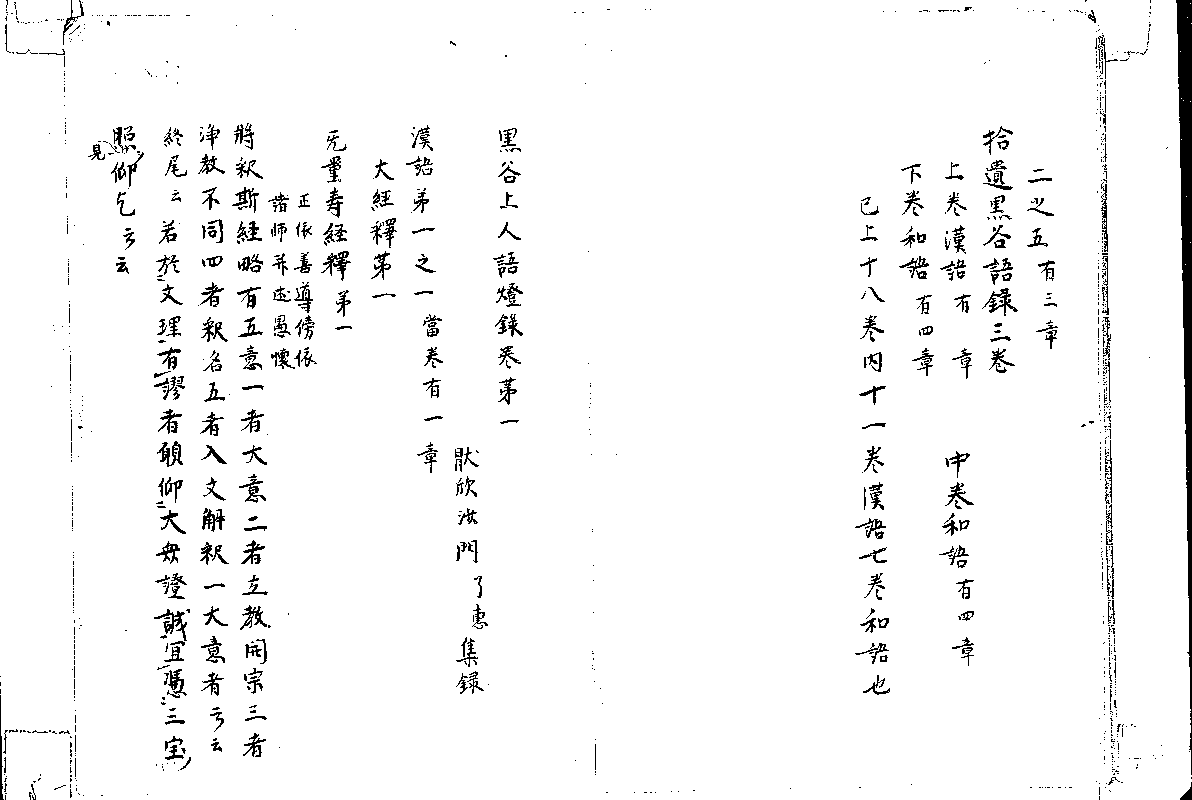 二之五有三章
拾遺黒谷語録三巻
上巻漢語有　章　　中巻和語有四章
下巻和語有四章
已上十八巻内十一巻漢語七巻和語也
黒谷上人語燈録巻第一
厭欣沙門了恵集録
漢語第一之一當巻有一章
大經釋第一
无量寿経釋第一
正依善導傍依
諸師并述愚懐
将釈斯經略有五意一者大意二者立教開宗三者
浄教不同四者釈名五者入文解釈一大意者云云
終尾云若於文理有謬者願仰大毋證誠宜憑三宝
照見仰乞云云